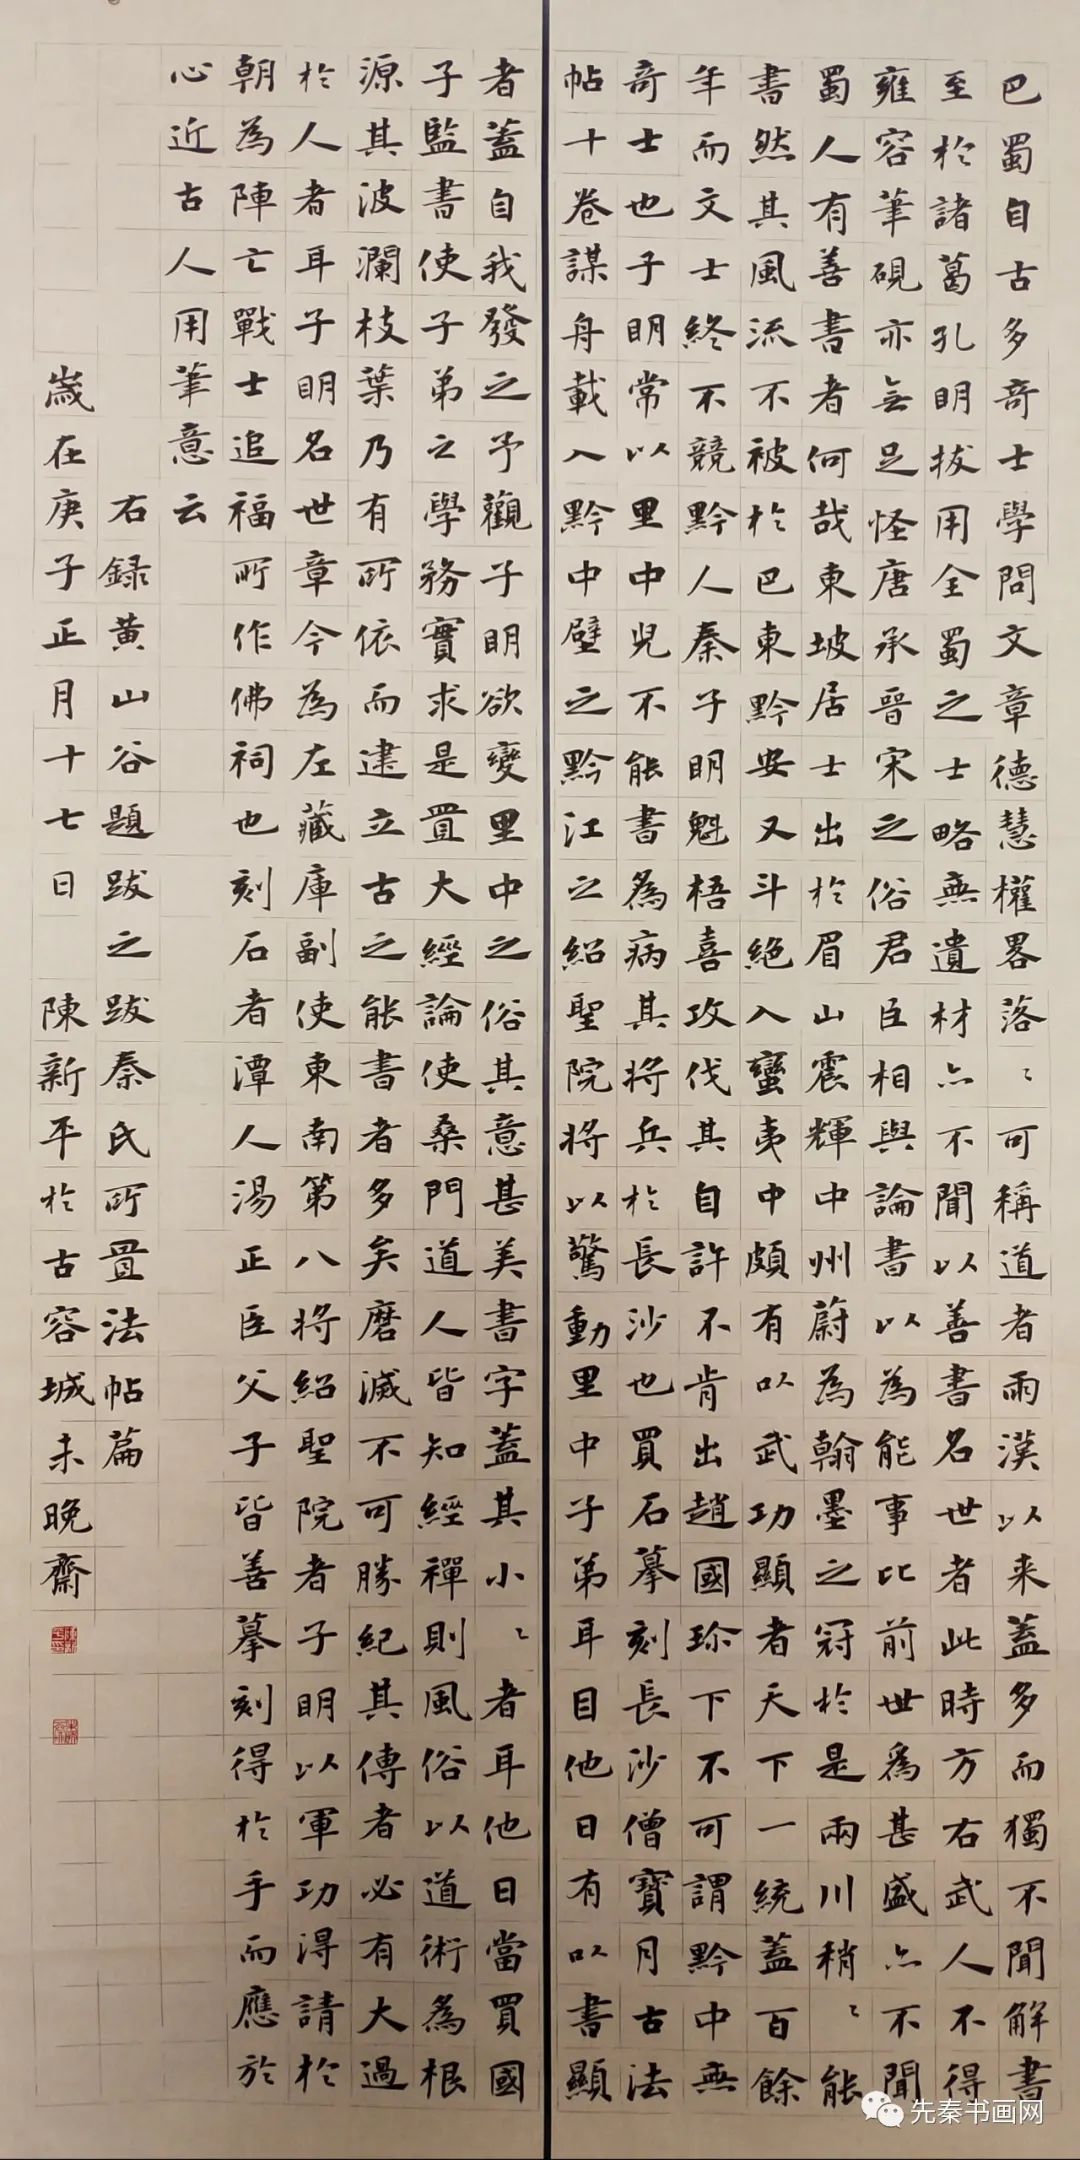 巴蜀自古多奇士學問文章德慧權畧落〻可稱道者兩漢以来蓋多而獨不聞解書
至於諸葛孔明拔用全蜀之士略無遺材亦不聞以善書名世者此時方右武人不得
雍容筆硯亦無足怪唐承晉宋之俗君臣相與論書以為能事比前世為甚盛亦不聞
蜀人有善書者何哉東坡居士出於眉山震輝中州蔚為翰墨之冠於是兩川稍〻能
書然其風流不被於巴東黔安又斗絕入蠻夷中頗有以武功顯者天下一統蓋百餘
年而文士終不競黔人秦子明魁梧喜攻伐其自許不肯出趙國珍下不可謂黔中無
奇士也子明常以里中兒不能書為病其將兵於長沙也買石摹刻長沙僧寶月古法
帖十卷謀舟載入黔中壁之黔江之紹聖院將以驚動里中子弟耳目他日有以書顯
者蓋自我發之予觀子明欲變里中之俗其意甚美書字蓋其小〻者耳他日當買國
子監書使子弟之學務實求是置大經論使桑門道人皆知經禪則風俗以道術為根
源其波瀾枝葉乃有所依而建立古之能書者多矣磨滅不可勝紀其傳者必有大過
於人者耳子明名世章今為左藏庫副使東南第八將紹聖院者子明以軍功得請於
朝為陣亡戰士追福所作佛祠也刻石者潭人湯正臣父子皆善摹刻得於手而應於
心近古人用筆意云
右録黄山谷題跋之跋秦氏所置法帖篇
嵗在庚子正月十七日 陳新平於古容城未晚齋
先秦书画网